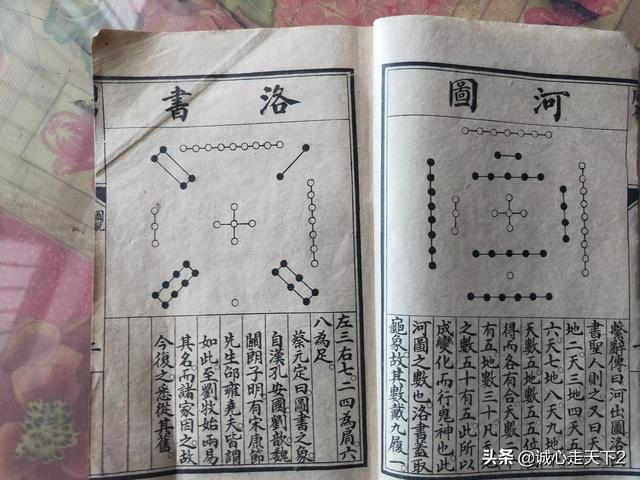 河圖
繫辭傳曰河出圖洛
書聖人則之又曰天一
地二天三地四天五地
六天七地八天九地十
天數五地數五五位相
得而各有合天數二十
有五地數三十凡天地
之數五十有五此所以
成變化而行鬼神也此
河圖之數也洛書蓋取
龜象故其數戴九履一
洛書
左三右七二四為肩六
八為足
蔡元定曰圖書之象
自漢孔安國劉歆魏
關朗子明有宋康節
先生邵雍堯夫皆謂
如此至劉牧始兩易
其名而諸家因之故
今復之悉從其舊
圖說
头条 @诚心走天下2